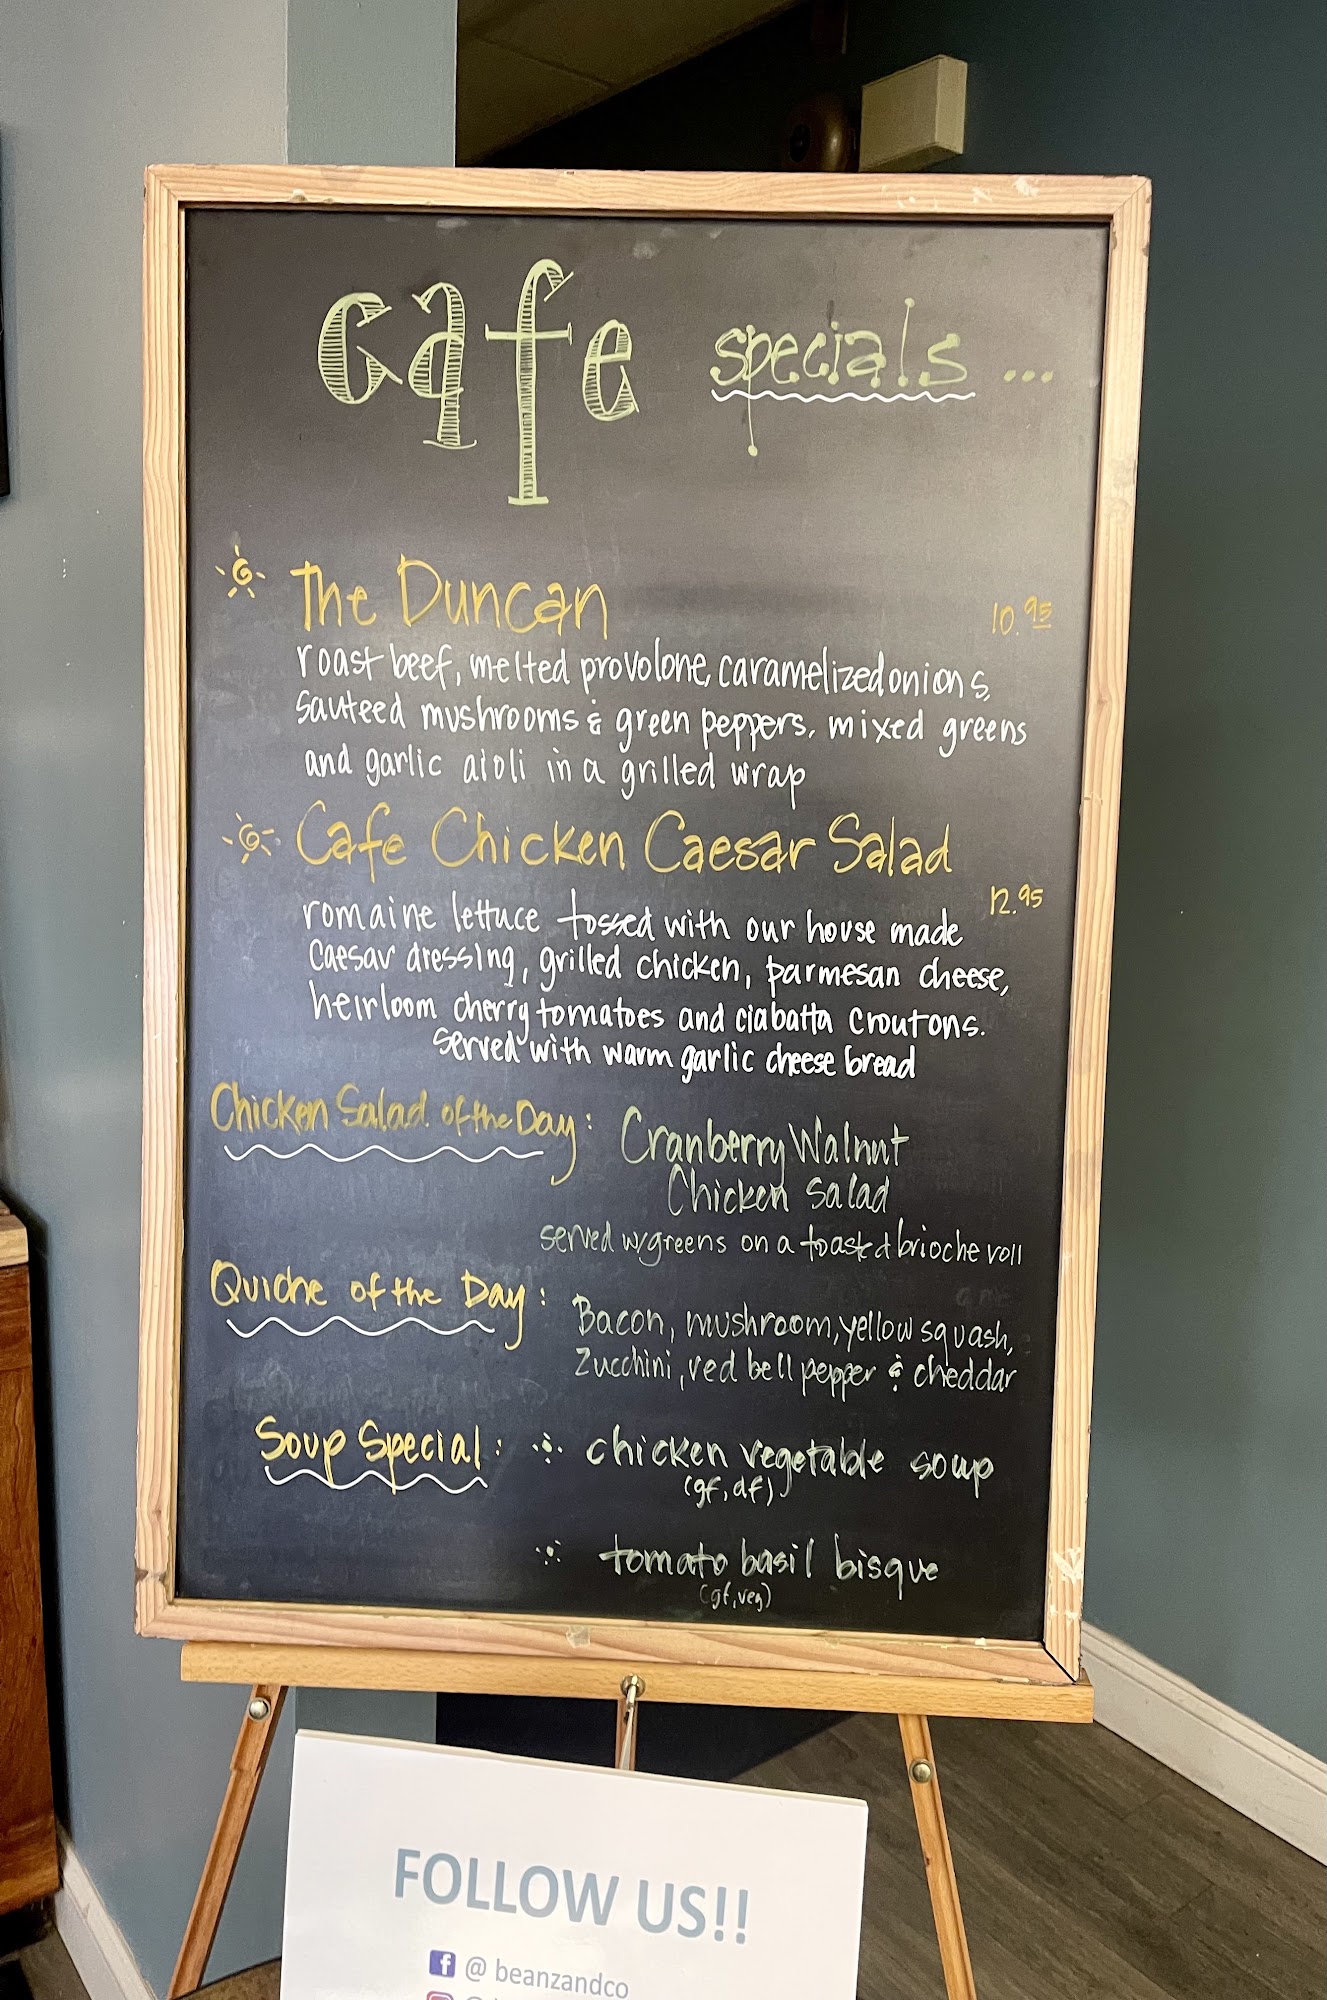 cafe specials...
The Duncan 10.95
roast beef, melted provolone, caramelized onions,
sauteed mushrooms & green peppers, mixed greens
and garlic aioli in a grilled wrap
Cafe Chicken Caesar Salad
12.95
romaine lettuce tossed with our house made
Caesar dressing, grilled chicken, parmesan cheese,
heirloom cherry tomatoes and ciabatta croutons.
served with warm garlic cheese bread
Chicken Salad of the Day: Cranberry Walnut
Chicken Salad
served w/greens on a toasted brioche roll
Quiche of the Day: Bacon, mushroom, yellow squash,
zucchini, red bell pepper & cheddar
Soup Special: chicken vegetable soup
(gf, df)
tomato basil bisque
(gf, veg)
FOLLOW US!!
@ beanzandco